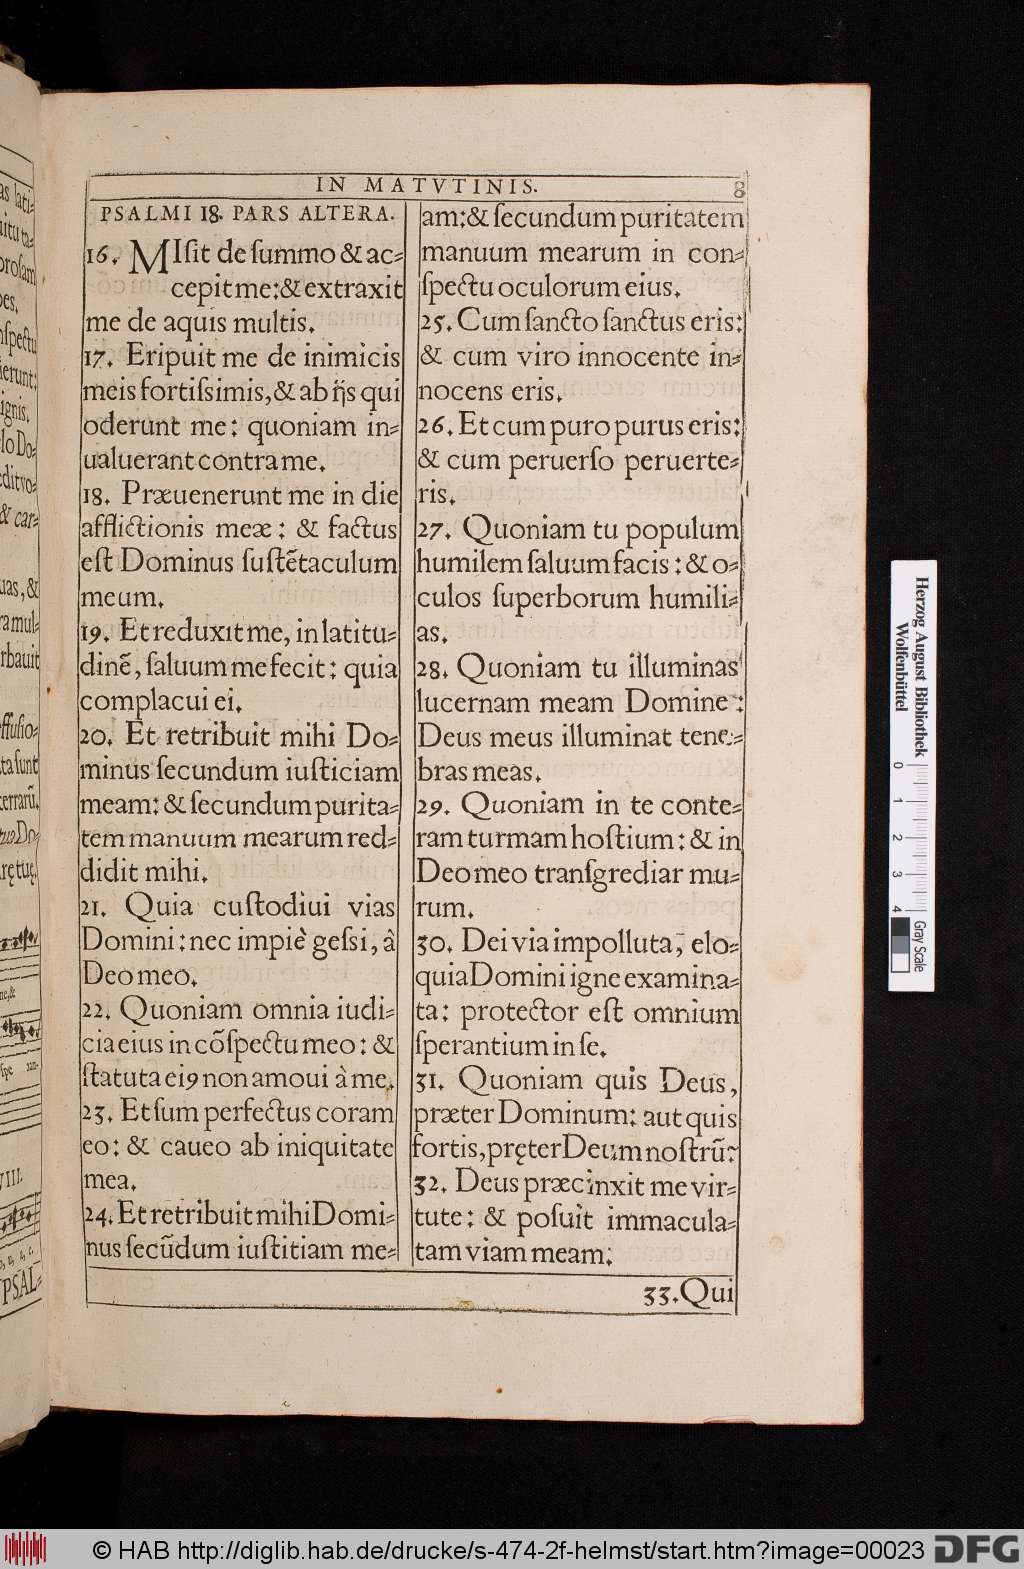 IN MATVTINIS.
8
PSALMI 18. PARS ALTERA.
16. MIſit de ſummo & ac-
cepit me: & extraxit
me de aquis multis.
17. Eripuit me de inimicis
meis fortiſsimis, & ab ijs qui
oderunt me: quoniam in-
ualuerant contra me.
18. Præuenerunt me in die
afflictionis meæ: & factus
eſt Dominus ſuſtẽtaculum
meum.
19. Et reduxit me, in latitu-
dinẽ, ſaluum me fecit: quia
complacui ei.
20. Et retribuit mihi Do-
minus ſecundum iuſticiam
meam: & ſecundum purita-
tem manuum mearum red-
didit mihi.
21. Quia cuſtodiui vias
Domini: nec impiè geſsi, à
Deo meo.
22. Quoniam omnia iudi-
cia eius in cõſpectu meo: &
ſtatuta ei9 non amoui à me.
23. Et ſum perfectus coram
eo: & caueo ab iniquitate
mea.
24. Et retribuit mihi Domi-
nus ſecũdum iuſtitiam me-
am: & ſecundum puritatem
manuum mearum in con-
ſpectu oculorum eius.
25. Cum ſancto ſanctus eris:
& cum viro innocente in-
nocens eris.
26. Et cum puro purus eris:
& cum peruerſo peruerte-
ris.
27. Quoniam tu populum
humilem ſaluum facis: & o-
culos ſuperborum humili-
as.
28. Quoniam tu illuminas
lucernam meam Domine:
Deus meus illuminat tene-
bras meas.
29. Quoniam in te conte-
ram turmam hoſtium: & in
Deo meo tranſgrediar mu-
rum.
30. Dei via impolluta, elo-
quia Domini igne examina-
ta: protector eſt omnium
ſperantium in ſe.
31. Quoniam quis Deus,
præter Dominum: aut quis
fortis, pręter Deum noſtrũ?
32. Deus præcinxit me vir-
tute: & poſuit immacula-
tam viam meam:
33. Qui
Herzog August Bibliothek
Wolfenbüttel
0 1 2 3 4
Gray Scale
© HAB http://diglib.hab.de/drucke/s-474-2f-helmst/start.htm?image=00023
DFG